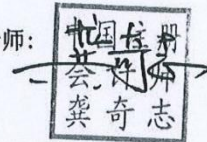 师:
中国注册
会计师
龚奇志